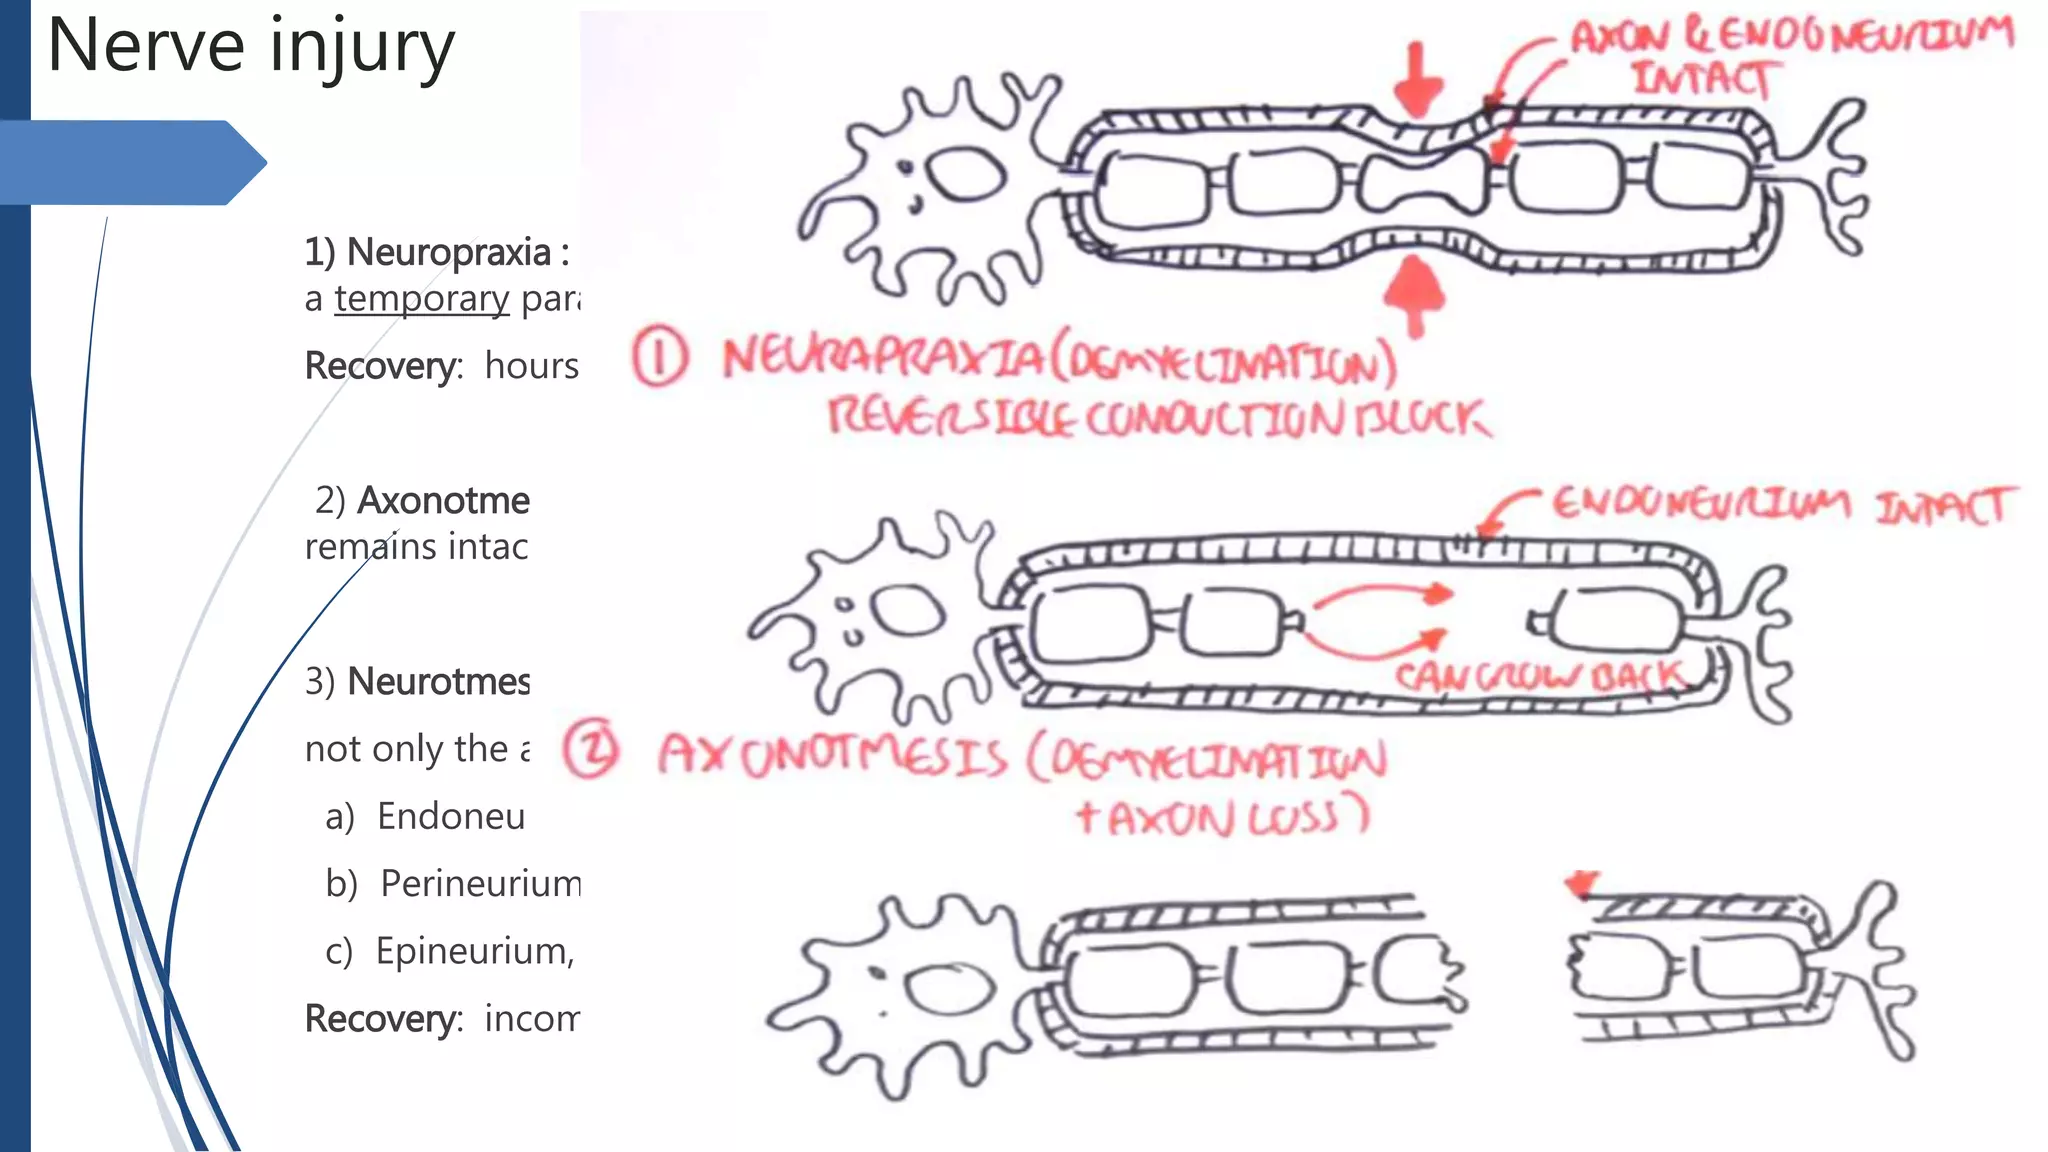 Nerve injury
1) Neuropraxia :
a temporary para
Recovery: hours
2) Axonotme
remains intac
3) Neurotmes
not only the a
a) Endoneu
b) Perineurium
c) Epineurium,
Recovery: incom
AXON & ENDONEURIUM
INTACT
① NEURAPRAXIA (DEMYELINATION)
REVERSIBLE CONDUCTION BLOCK
ENDONEURIUM INTACT
CAN GROW BACK
② AXONOTMESIS (DEMYELINATION
+ AXON LOSS)